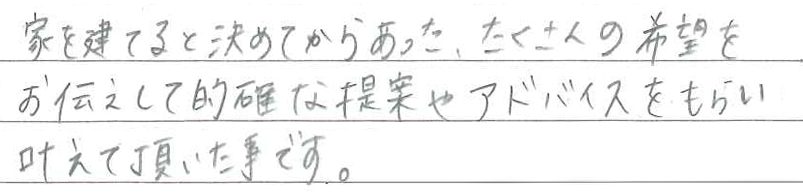 家を建てると決めてからあった、たくさんの希望を
お伝えして的確な提案やアドバイスをもらい
叶えて頂いた事です。